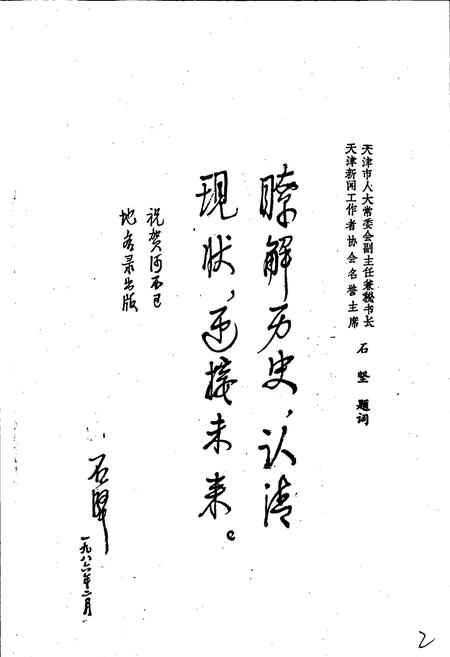 天津市人大常委会副主任兼秘书长
天津新闻工作者协会名誉主席
石坚题词
瞭解历史，认清
现状，迎接未来。
祝贺河西区
地名录出版
石坚
一九八六年二月
2